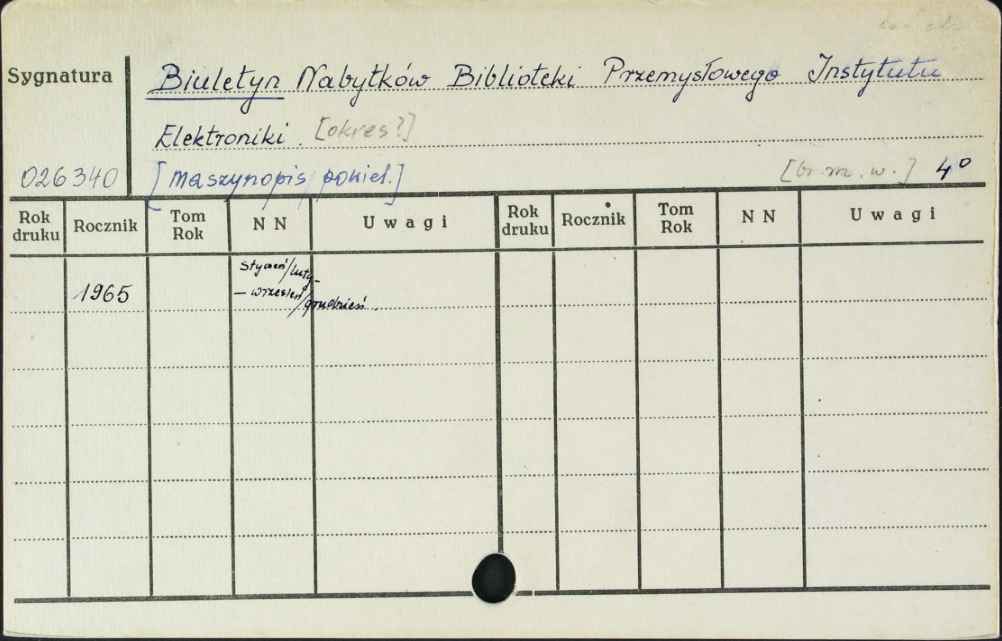 Sygnatura
Biuletyn Nabytków Biblioteki Przemysłowego Instytutu
Elektroniki. [okres?]
026340 [maszynopis powiel.] [br. m. w.] 4º
Rok druku Rocznik Tom Rok N N U w a g i Rok druku Rocznik Tom Rok N N U w a g i
1965 styczeń/luty-
– wrzesień/grudzień.